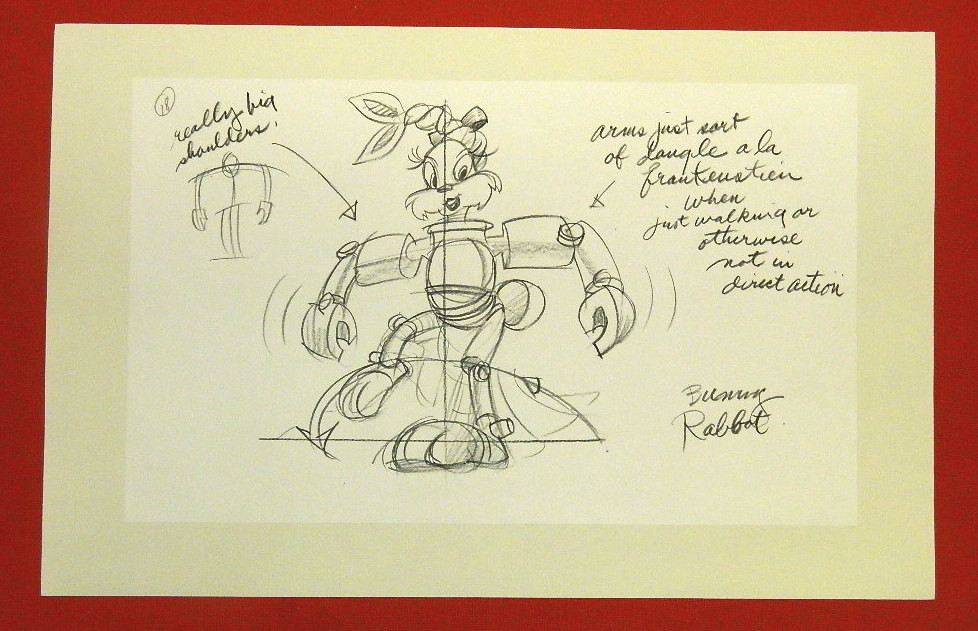 18
really big
shoulders!
arms just sort
of dangle a la
frankenstien
when
just walking or
otherwise
not in
direct action
Bunny
Rabbot